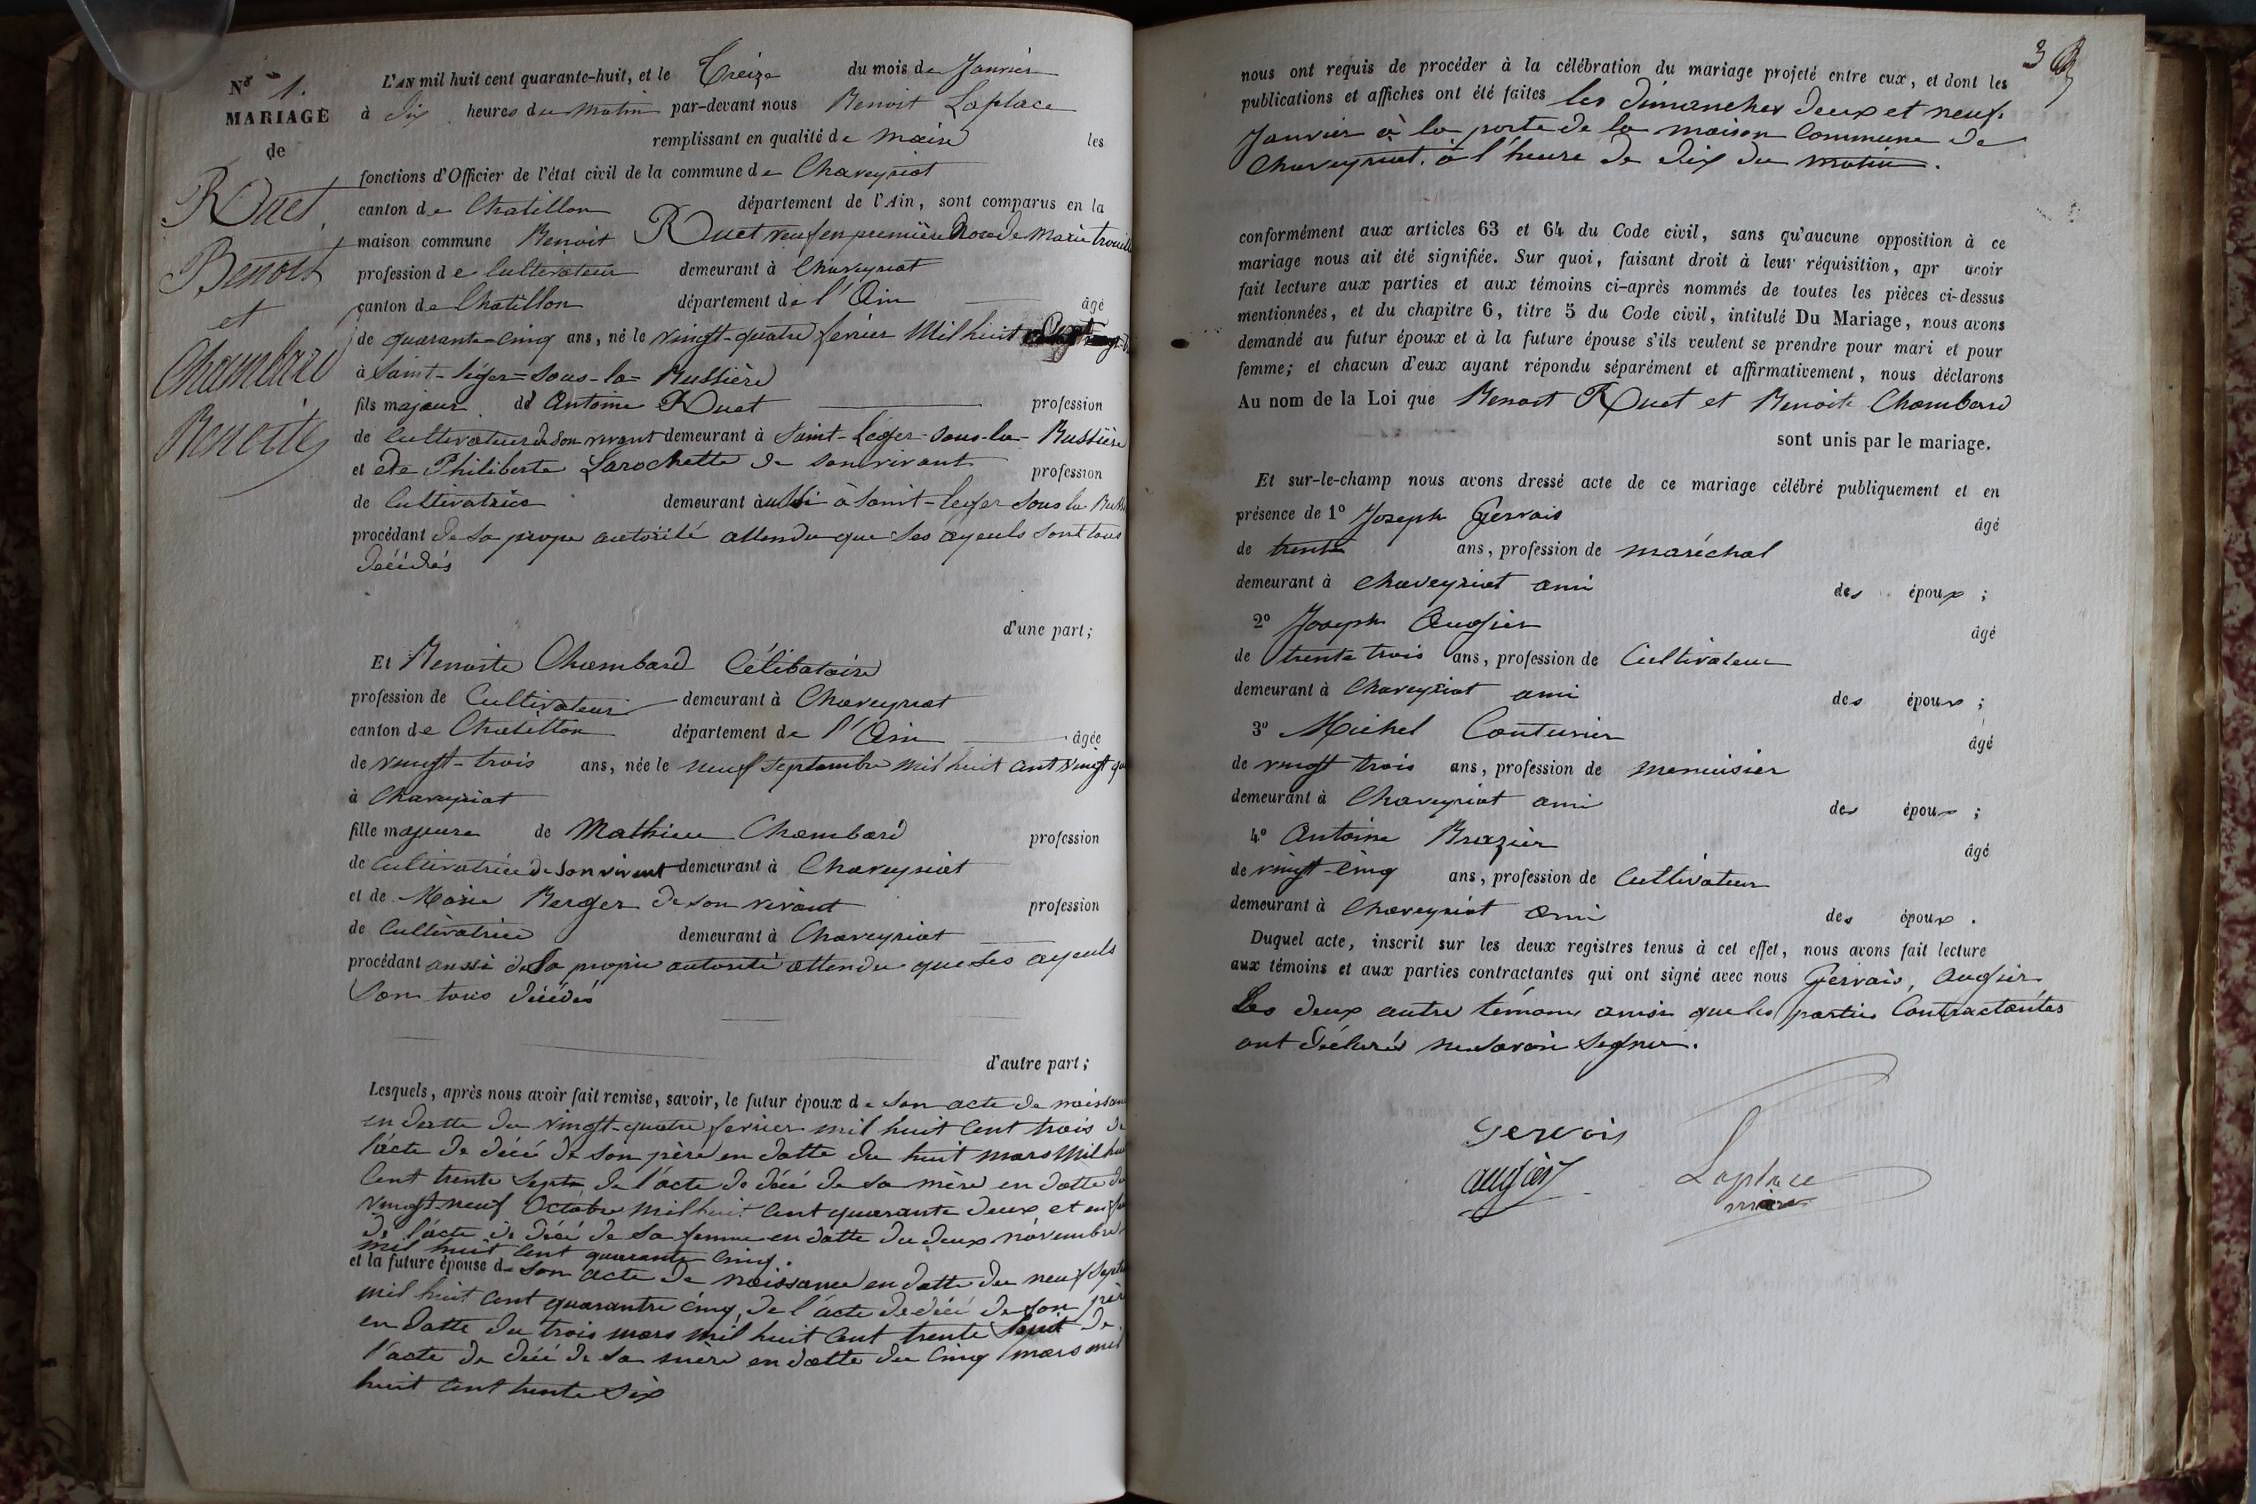 N° 1.
MARIAGE
de
Ruet
Benoit
et
Chambard
Benoite
L'AN mil huit cent quarante-huit, et le Treize du mois de Janvier
à dix heures du matin par-devant nous Benoit Laplace
remplissant en qualité de maire les
fonctions d'Officier de l'état civil de la commune de Chaveyriat
canton de Chatillon département de l'Ain, sont comparus en la
maison commune Benoit Ruet veuf en première Noce de Marie
profession de Cultivateur demeurant à Chaveyriat
canton de Chatillon département de l'Ain âgé
de quarante-cinq ans, né le vingt-quatre fevrier Mil huit
à Saint-léger-sous-la-Bussière
fils majeur de Antoine Ruet profession
de Cultivateur de son vivant demeurant à Saint-Léger-sous-la-Bussière
et de Philiberte Larochette de son vivant profession
de Cultivatrice demeurant aussi à Saint-leger sous la
procédant de sa propre autorité attendu que ses ayeuls sont tous
décédés
d'une part;
Et Benoite Chambard Célibataire
profession de Cultivateur demeurant à Chaveyriat
canton de Chatillon département de l'Ain âgée
de vingt-trois ans, née le neuf Septembre mil huit cent vingt
à Chaveyriat
fille majeure de Mathieu Chambard profession
de Cultivatrice de son vivant demeurant à Chaveyriat
et de Marie Berger de son vivant profession
de Cultivatrice demeurant à Chaveyriat
procédant aussi de sa propre autorité attendu que ses ayeuls
Son tous décédés
d'autre part;
Lesquels, après nous avoir fait remise, savoir, le futur époux de son acte de
en datte du vingt-quatre fevrier mil huit cent trois de
l'acte de décé de son père en datte du huit mars mil
cent trente Sept de l'acte de décé de sa mère en datte du
vingt-neuf Octobre mil huit cent quarante deux et
de l'acte de décé de sa femme en datte du deux novembre
mil huit cent quarante cinq.
et la future épouse de son acte de naissance en datte du neuf
mil huit cent quarante cinq, de l'acte de décé de son père
en datte du trois mars mil huit cent trente huit de
l'acte de décé de sa mère en datte du cinq mars mil
huit cent trente Six
3
nous ont requis de procéder à la célébration du mariage projeté entre eux, et dont les
publications et affiches ont été faites les dimanches deux et neuf
Janvier à la porte de la maison Commune de
Chaveyriat. à l'heure de dix du matin.
conformément aux articles 63 et 64 du Code civil, sans qu'aucune opposition à ce
mariage nous ait été signifiée. Sur quoi, faisant droit à leur réquisition, apr avoir
fait lecture aux parties et aux témoins ci-après nommés de toutes les pièces ci-dessus
mentionnées, et du chapitre 6, titre 5 du Code civil, intitulé Du Mariage, nous avons
demandé au futur époux et à la future épouse s'ils veulent se prendre pour mari et pour
femme; et chacun d'eux ayant répondu séparément et affirmativement, nous déclarons
Au nom de la Loi que Benoit Ruet et Benoite Chambard
sont unis par le mariage.
Et sur-le-champ nous avons dressé acte de ce mariage célébré publiquement et en
présence de 1° Joseph Gervais âgé
de trente ans, profession de maréchal
demeurant à Chaveyriat ami des époux ;
2° Joseph Augier âgé
de trente trois ans, profession de Cultivateur
demeurant à Chaveyriat ami des époux ;
3° Michel Couturier âgé
de vingt trois ans, profession de menuisier
demeurant à Chaveyriat ami des époux ;
4° Antoine Brazier âgé
de vingt-cinq ans, profession de Cultivateur
demeurant à Chaveyriat ami des époux .
Duquel acte, inscrit sur les deux registres tenus à cet effet, nous avons fait lecture
aux témoins et aux parties contractantes qui ont signé avec nous Gervais, Augier
Les deux autre témoins ainsi que les parties Contractantes
ont déclarés ne savoir signer.
Gervais
augier
Laplace
maire